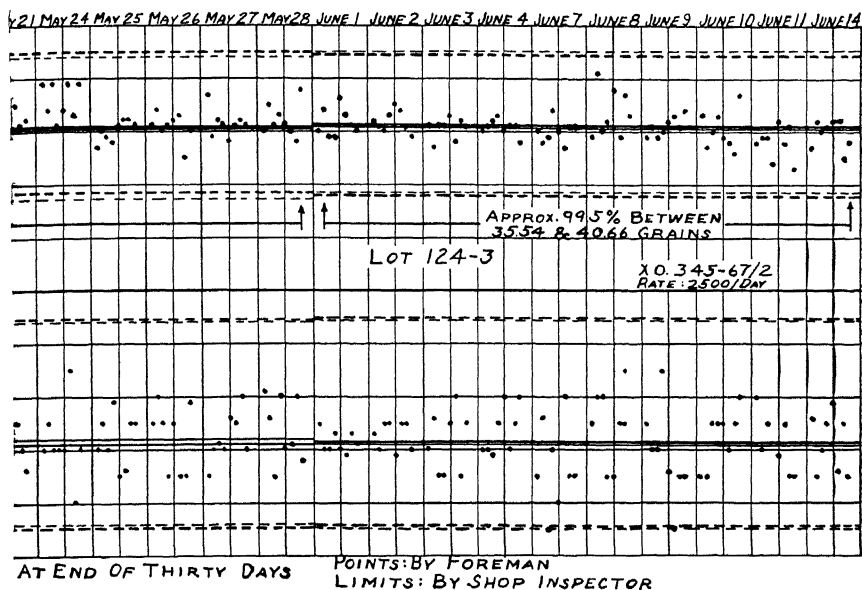 Y21 MAY 24 MAY 25 MAY 26 MAY 27 MAY 28 JUNE 1 JUNE 2 JUNE 3 JUNE 4 JUNE 7 JUNE 8 JUNE 9 JUNE 10 JUNE 11 JUNE 14
APPROX. 99.5% BETWEEN
35.54 & 40.66 GRAINS
LOT 124-3
XO. 345-67/2
RATE: 2500/DAY
AT END OF THIRTY DAYS
POINTS: BY FOREMAN
LIMITS: BY SHOP INSPECTOR